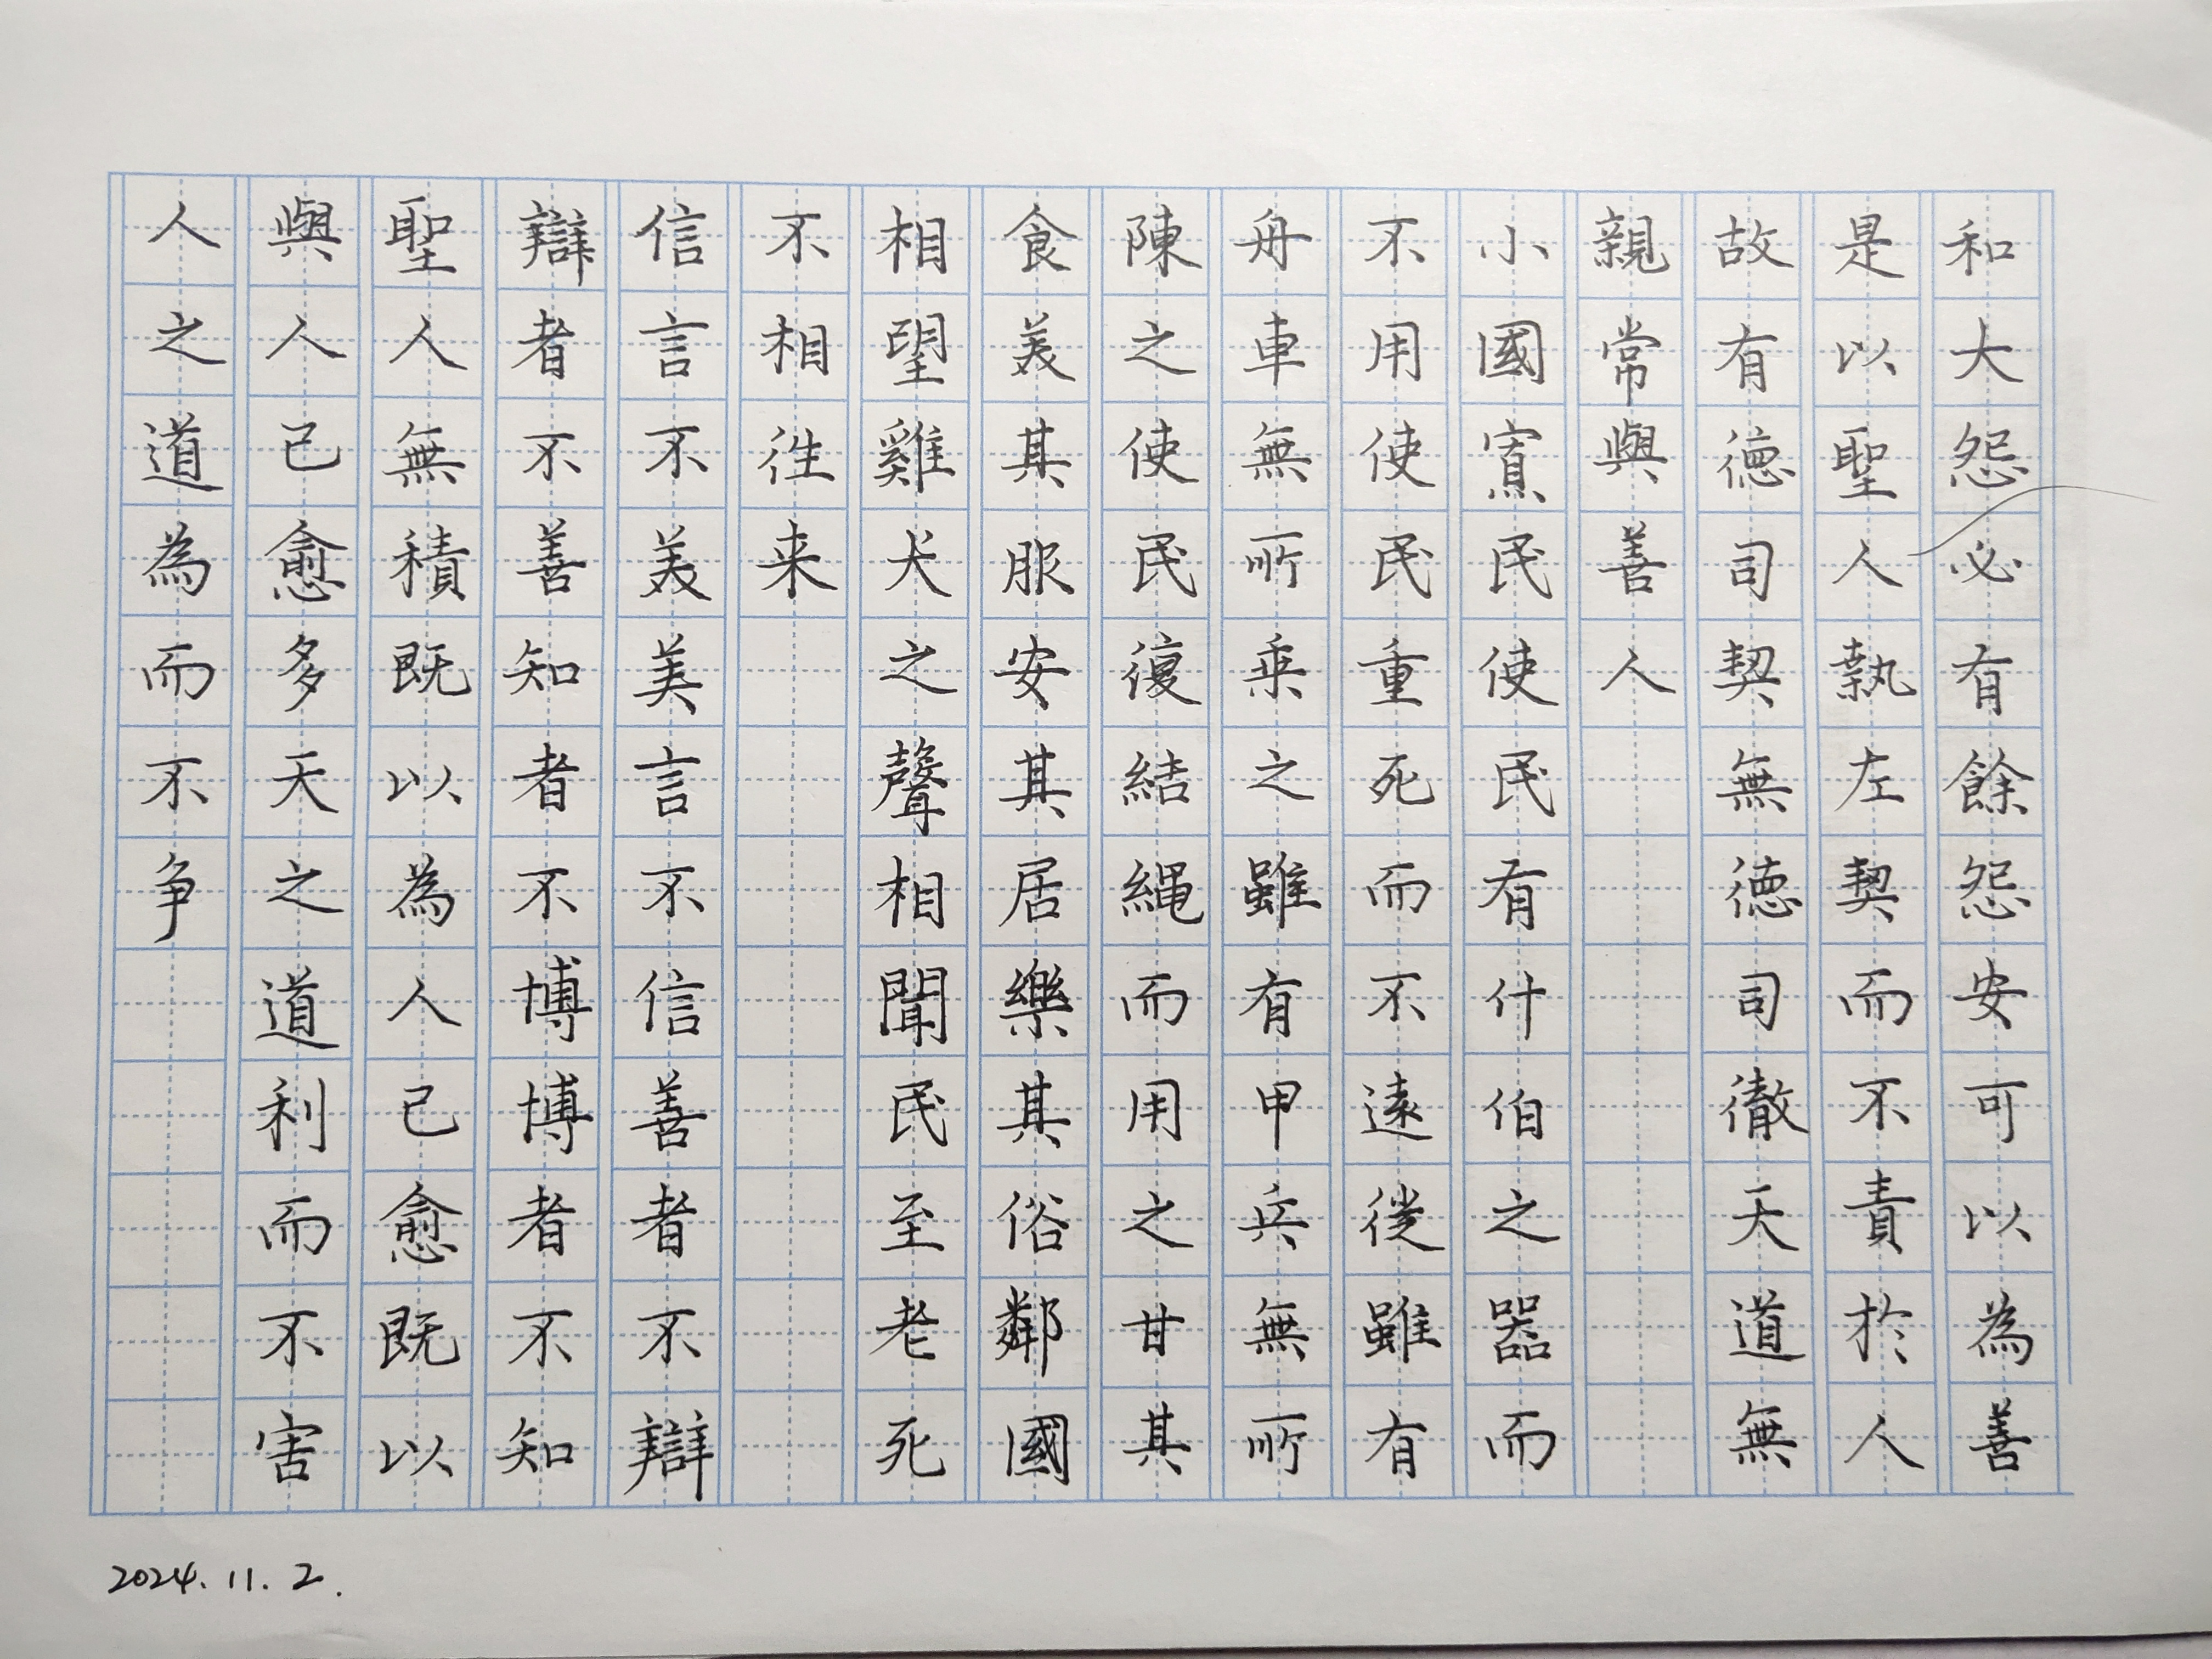 和大怨必有餘怨安可以為善
是以聖人執左契而不責於人
故有德司契無德司徹天道無
親常與善人
小國寡民使民有什伯之器而
不用使民重死而不遠徙雖有
舟車無所乘之雖有甲兵無所
陳之使民復結繩而用之甘其
食美其服安其居樂其俗鄰國
相望雞犬之聲相聞民至老死
不相往来
信言不美美言不信善者不辯
辯者不善知者不博博者不知
聖人無積既以為人己愈既以
與人己愈多天之道利而不害
人之道為而不争
2024.11.2.